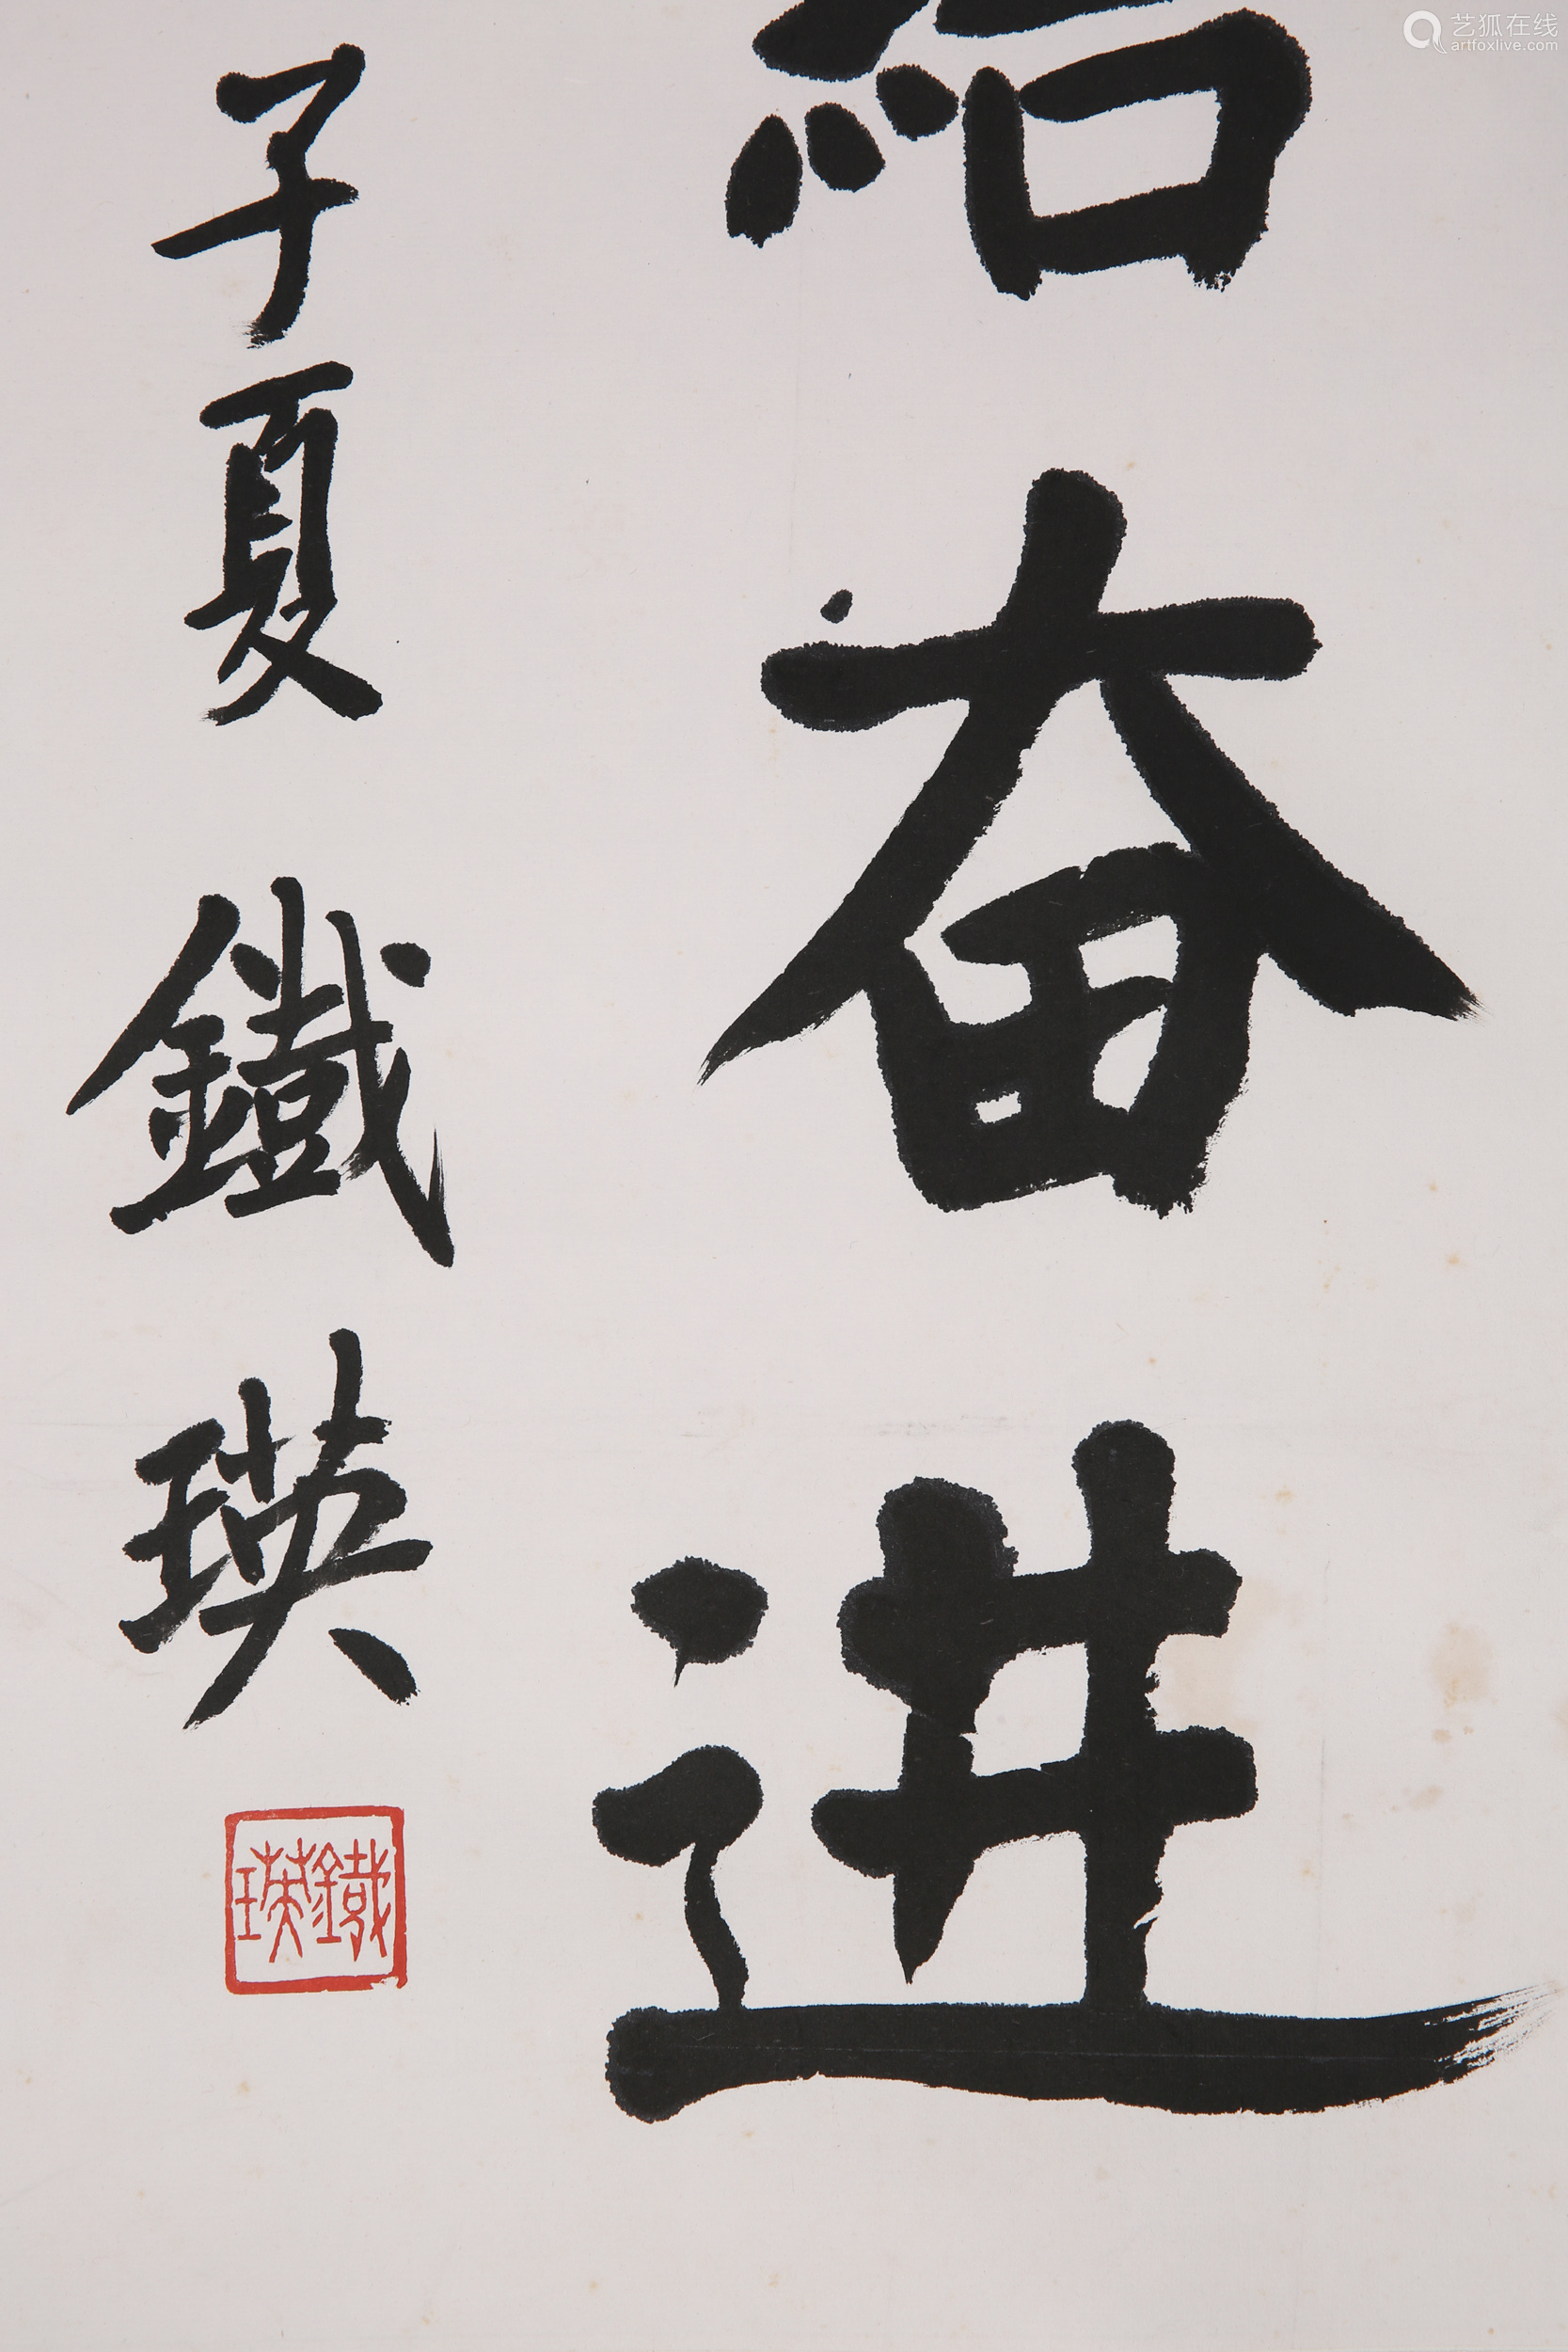 奋进
子夏 鐵瑛
鐵瑛
艺狐在线
artfoxlive.com